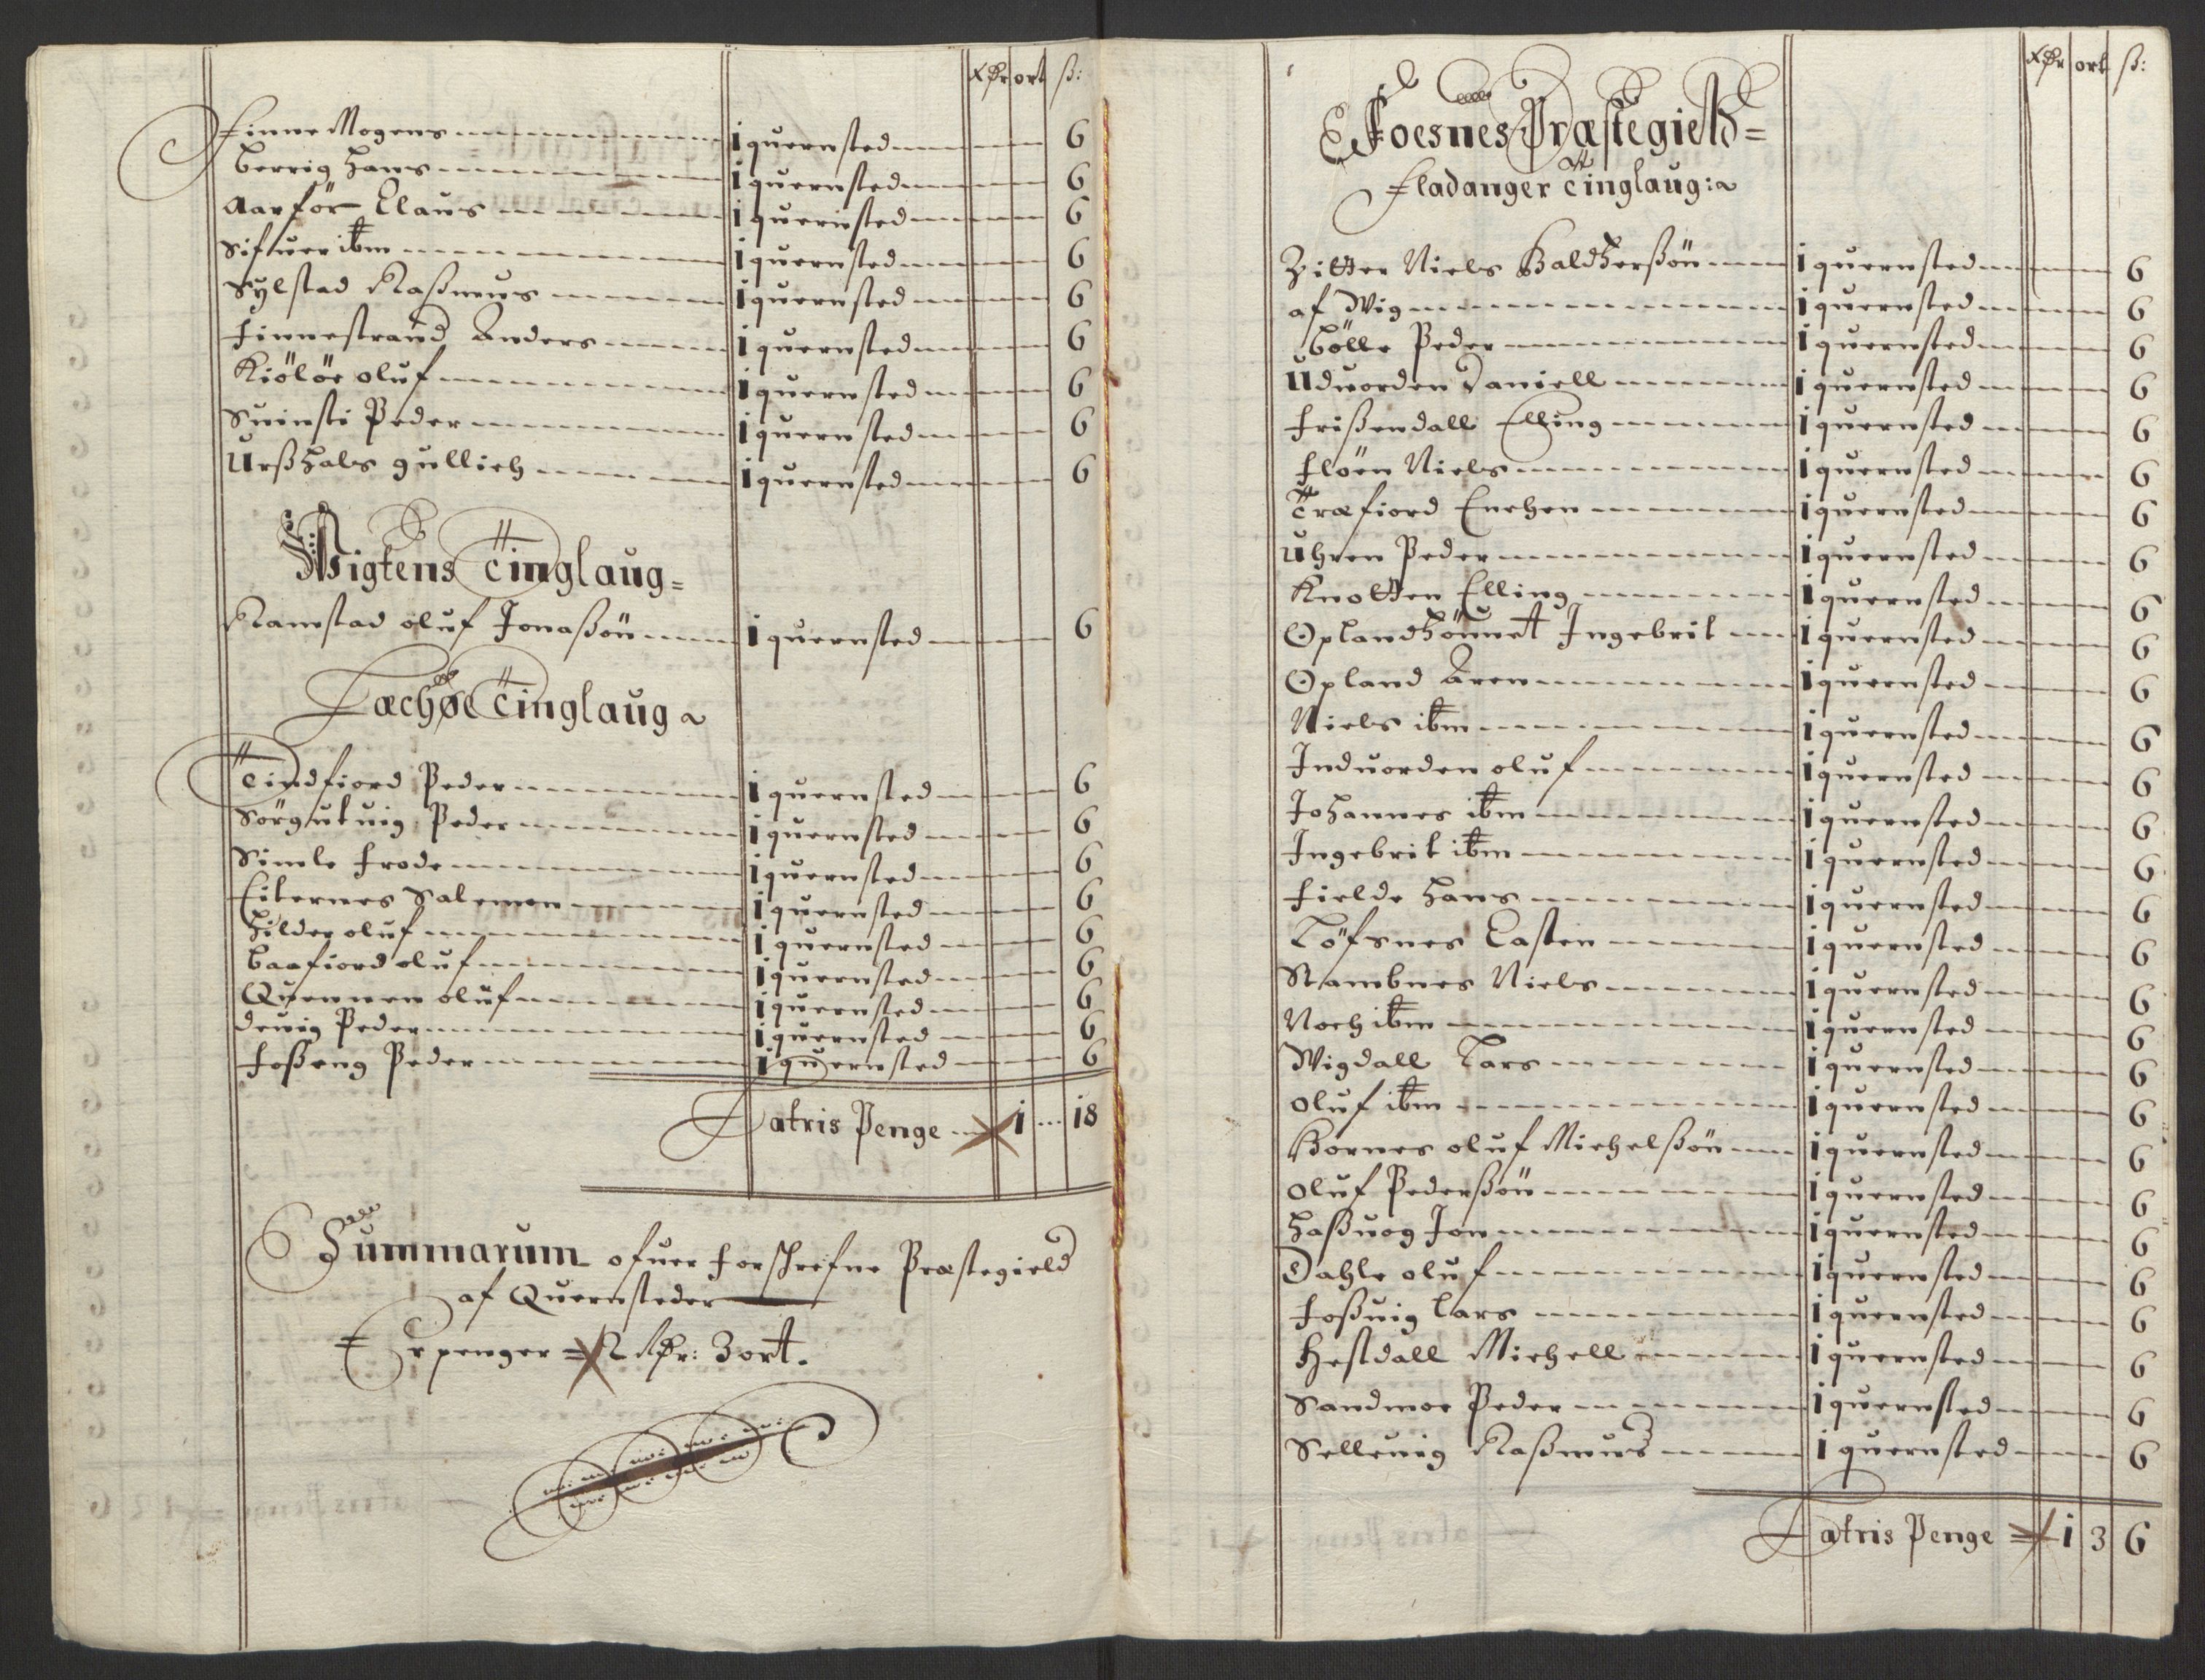 Rdr ort ß:
Finne Mogens 1 quernsted 6
Berrig Hans 1 quernsted 6
Aarför Claus 1 quernsted 6
Sifuer ibm 1 quernsted 6
Sylstad Raßmus 1 quernsted 6
Finnestrand Anders 1 quernsted 6
Kiölöe oluf 1 quernsted 6
Suinsti Peder 1 quernsted 6
Urßhals gullich 1 quernsted 6
Wigtens Tinglaug
Ramstad oluf Jonaßön 1 quernsted 6
Læchøe Tinglaug
Tindfiord Peder 1 quernsted 6
Sörgutuig Peder 1 quernsted 6
Simle Frode 1 quernsted 6
Eiternes Salemon 1 quernsted 6
Hilder oluf 1 quernsted 6
Baafiord oluf 1 quernsted 6
Quennen oluf 1 quernsted 6
Deuig Peder 1 quernsted 6
Foßeng Peder 1 quernsted 6
Latris Penge 1 18
Summarum ofuer forschrefne Præstegield
af Quernsteder
Er penger 2 Rdr: 3 ort.
Rdr ort ß:
Foesnes Præstegield
Fladanger Tinglaug
Zitter Niels Baldtzerßön 1 quernsted 6
af Wig 1 quernsted 6
Bölle Peder 1 quernsted 6
Uduorden Daniell 1 quernsted 6
Frißendall Elling 1 quernsted 6
Flöen Niels 1 quernsted 6
Træfiord Enchen 1 quernsted 6
Uhren Peder 1 quernsted 6
Knotten Elling 1 quernsted 6
Oplandhönnet Ingebrit 1 quernsted 6
Opland Aren 1 quernsted 6
Niels ibm 1 quernsted 6
Induorden oluf 1 quernsted 6
Johannes ibm 1 quernsted 6
Ingebrit ibm 1 quernsted 6
Fielde Hans 1 quernsted 6
Löfsnes Casten 1 quernsted 6
Stambnes Niels 1 quernsted 6
Noch ibm 1 quernsted 6
Wigdall Lars 1 quernsted 6
Oluf ibm 1 quernsted 6
Bornes oluf Michelßön 1 quernsted 6
Oluf Pederßön 1 quernsted 6
Haßuog Jon 1 quernsted 6
Dahle oluf 1 quernsted 6
Foßuig Lars 1 quernsted 6
Hestdall Michell 1 quernsted 6
Sandmoe Peder 1 quernsted 6
Selleuig Raßmus 1 quernsted 6
Latris Penge 1 3 6